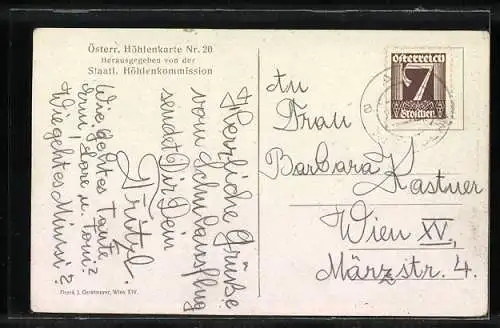 Österr. Höhlenkarte Nr. 20
Herausgegeben von der
Staatl. Höhlenkommission
Herzliche Grüße
vom Schulausflug
sendet Dir Dein
Fritzl.
Wie geht es Tante
Erni, Lore u. Toni?
Wie geht es Münsi?
Druck J. Gerstmayer, Wien XIV.
Österreich
7
Groschen
An
Frau
Barbara Kastner
Wien XV,
Märzstr. 4.